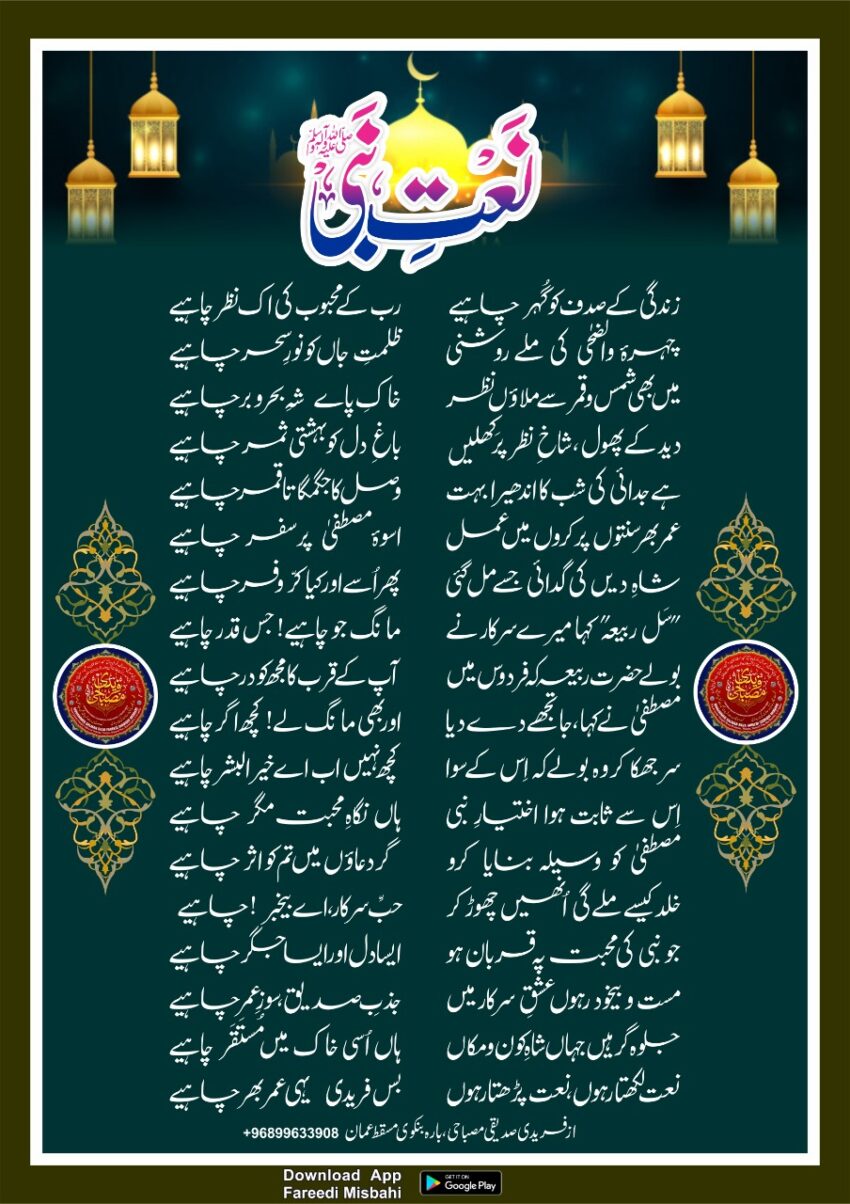 نَعْتِ نبی ﷺ
زندگی کے صدف کو گُہر چاہیے رب کے محبوب کی اک نظر چاہیے
چہرۂ والضحٰی کی ملے روشنی ظلمتِ جاں کو نورِ سحر چاہیے
میں بھی شمس و قمر سے ملاؤں نظر خاکِ پاے شہِ بحر و بر چاہیے
دید کے پھول، شاخِ نظر پر کھلیں باغِ دل کو بہشتی ثمر چاہیے
ہے جدائی کی شب کا اندھیرا بہت وصل کا جگمگاتا قمر چاہیے
عمر بھر سنتوں پر کروں میں عمل اسوۂ مصطفیٰ پر سفر چاہیے
شاہِ دیں کی گدائی جسے مل گئی پھر اُسے اور کیا کرّ و فر چاہیے
”سَل ربیعہ“ کہا میرے سرکار نے مانگ جو چاہیے! جس قدر چاہیے
بولے حضرت ربیعہ کہ فردوس میں آپ کے قرب کا مجھ کو در چاہیے
مصطفیٰ نے کہا، جا تجھے دے دیا اور بھی مانگ لے! کچھ اگر چاہیے
سر جھکا کر وہ بولے کہ اِس کے سوا کچھ نہیں اب اے خیر البشر چاہیے
اِس سے ثابت ہوا اختیارِ نبی ہاں نگاہِ محبت مگر چاہیے
مصطفیٰ کو وسیلہ بنایا کرو گر دعاؤں میں تم کو اثر چاہیے
خلد کیسے ملے گی اُنھیں چھوڑ کر حبِّ سرکار، اے بیخبر! چاہیے
جو نبی کی محبت پہ قربان ہو ایسا دل اور ایسا جگر چاہیے
مست و بیخود رہوں عشقِ سرکار میں جذبِ صدیق، سوزِ عمر چاہیے
جلوہ گر ہیں جہاں شاہِ کون و مکاں ہاں اُسی خاک میں مُستَقَر چاہیے
نعت لکھتا رہوں، نعت پڑھتا رہوں بس فریدی یہی عمر بھر چاہیے
از فریدی صدیقی مصباحی، بارہ بنکوی مسقط عمان 96899633908+
Download App
Fareedi Misbahi
GET IT ON
Google Play
فریدی
مصباحی
فریدی
مصباحی